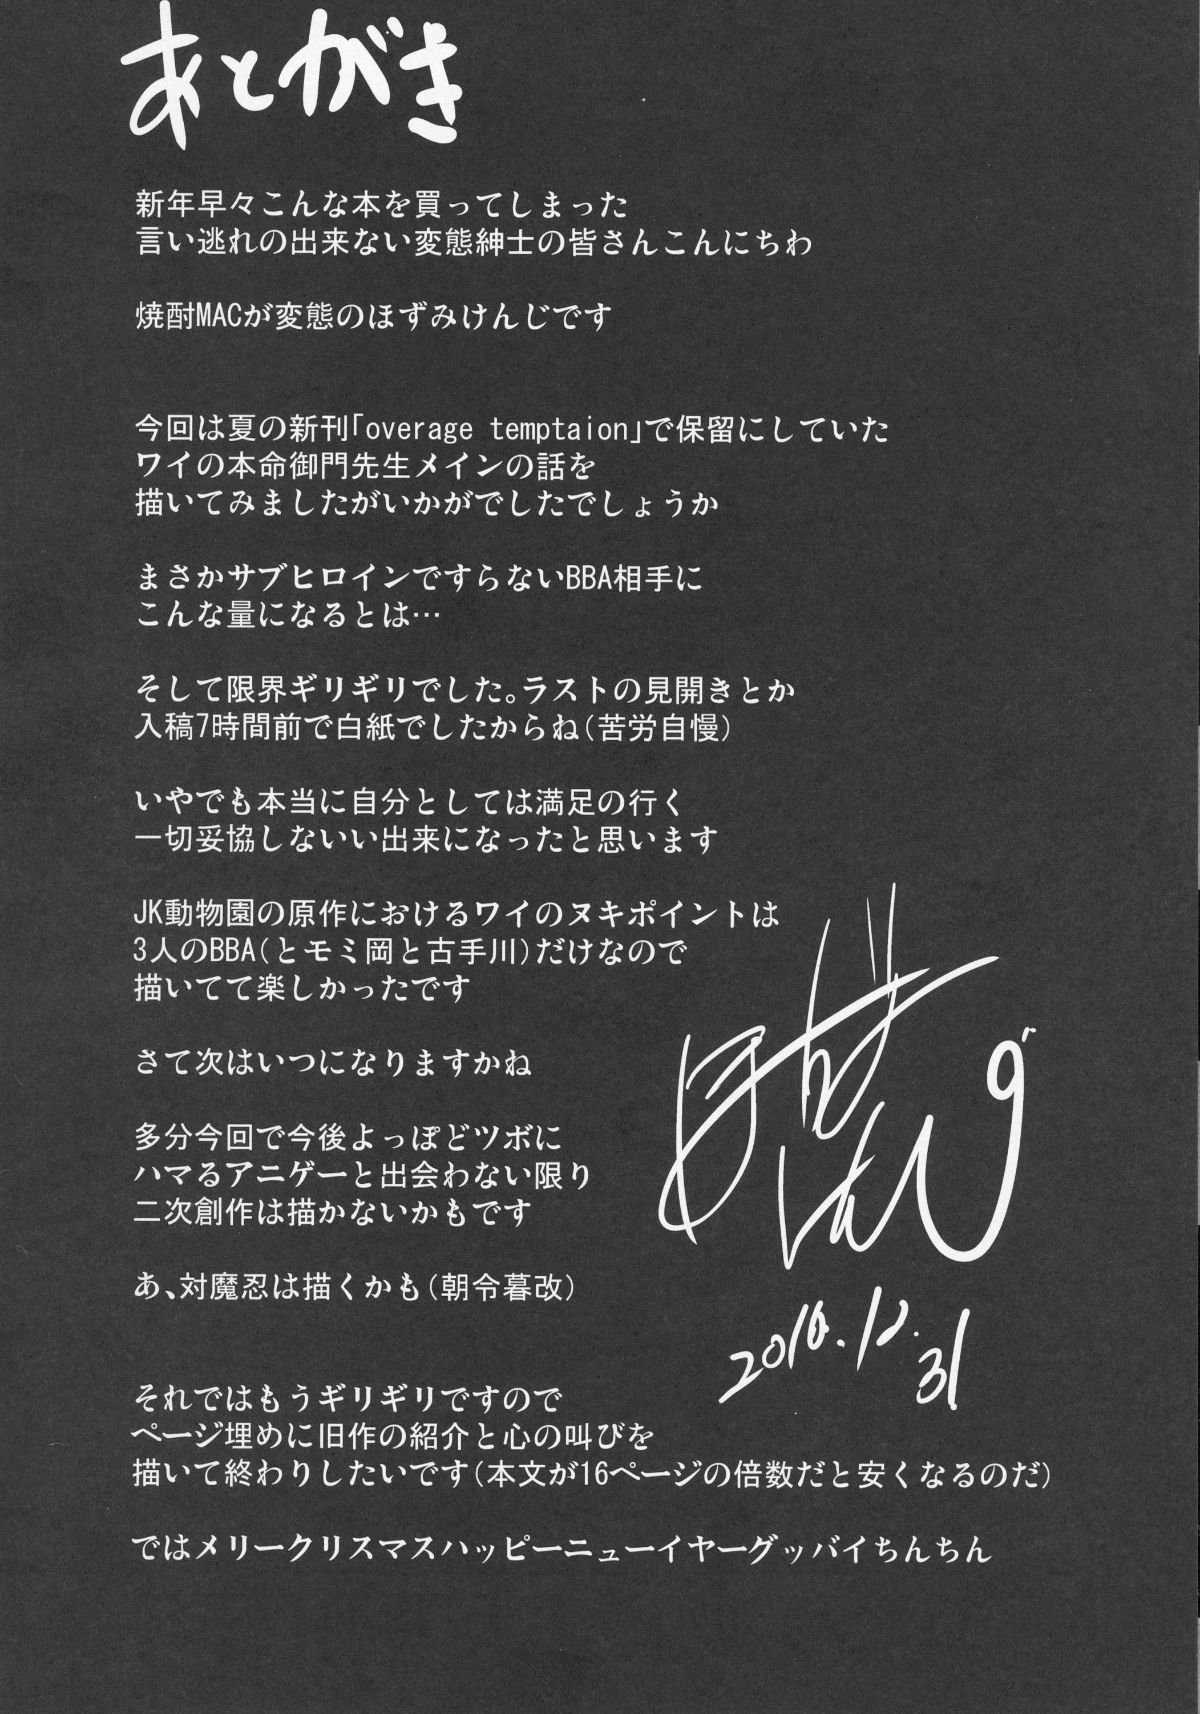 あとがき
新年早々こんな本を買ってしまった
言い逃れの出来ない変態紳士の皆さんこんにちわ
焼酎MACが変態のほずみけんじです
今回は夏の新刊｢overage temptaion｣で保留にしていた
ワイの本命御門先生メインの話を
描いてみましたがいかがでしたでしょうか
まさかサブヒロインですらないBBA相手に
こんな量になるとは…
そして限界ギリギリでした。ラストの見開きとか
入稿7時間前で白紙でしたからね(苦労自慢)
いやでも本当に自分としては満足の行く
一切妥協しないいい出来になったと思います
JK動物園の原作におけるワイのヌキポイントは
3人のBBA(とモミ岡と古手川)だけなので
描いてて楽しかったです
さて次はいつになりますかね
多分今回で今後よっぽどツボに
ハマるアニゲーと出会わない限り
二次創作は描かないかもです
あ、対魔忍は描くかも(朝令暮改)
2016.12.
31
それではもうギリギリですので
ページ埋めに旧作の紹介と心の叫びを
描いて終わりしたいです(本文が16ページの倍数だと安くなるのだ)
ではメリークリスマスハッピーニューイヤーグッバイちんちん